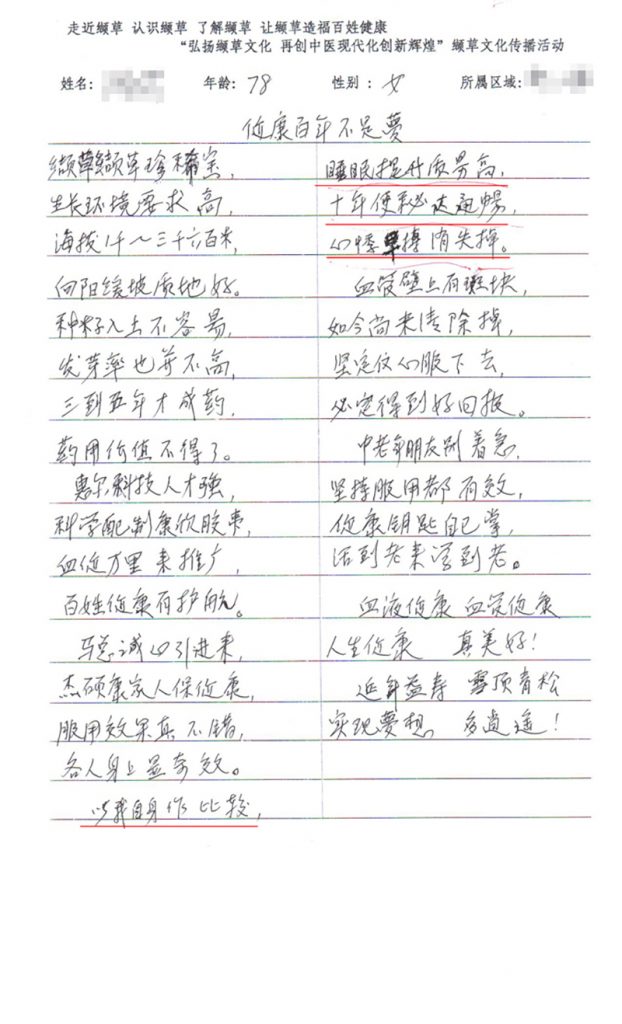 走近缬草 认识缬草 了解缬草 让缬草造福百姓健康
“弘扬缬草文化 再创中医现代化创新辉煌”缬草文化传播活动
姓名: 年龄: 78 性别: 女 所属区域:
健康百年不是夢
缬草缬草珍稀宝,
生长环境要求高,
海拔1千~三千六百米,
向阳缓坡质地好。
种籽入土不容易,
发芽率也并不高,
三到五年才成药,
药用价值不得了。
惠尔科技人才强,
科学配制康欣胶囊,
血健万里来推广,
百姓健康有护航。
马总诚心引进来,
杰硕康家人保健康,
服用效果真不错,
各人身上显奇效。
以我自身作比较,
睡眠提升质量高,
十年便秘达通暢,
心悸早搏消失掉。
血管壁上有斑块,
如今尚未清除掉,
坚定信心服下去,
必定得到好回报。
中老年朋友别着急,
坚持服用都有效,
健康钥匙自己掌,
活到老来学到老。
血液健康 血管健康
人生健康 真美好!
延年益寿 雪顶青松
实现夢想 多逍遥!